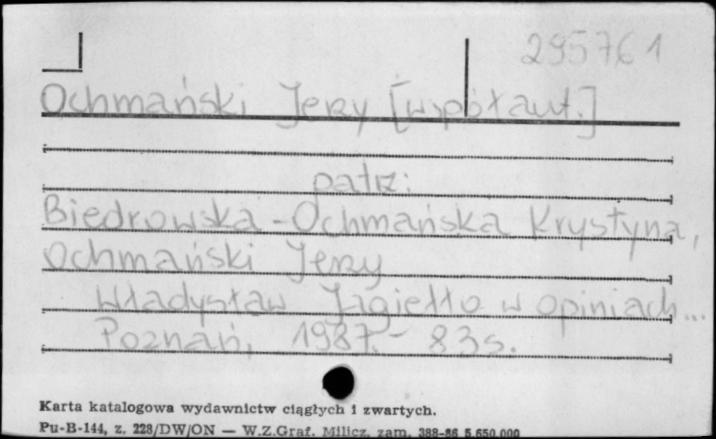 295761
Ochmański Jerzy [współaut.]
patrz:
Biedrowska-Ochmańska Krystyna,
Ochmański Jerzy
Władysław Jagiełło w opiniach...
Poznań, 1987.- 83 s.
Karta katalogowa wydawnictw ciągłych i zwartych.
Pu-B-144, z. 228/DW/ON — W.Z.Graf. Milicz, zam. 388-86 5.650.000